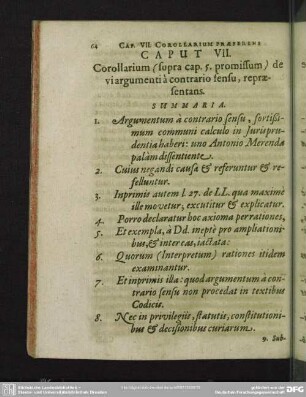 64 CAP. VII. COROLLARIUM PRÆFERENS
CAPUT VII.
Corollarium (supra cap. 5. promissum) de
vi argumenti à contrario sensu, repræ-
sentans.
SUMMARIA.
1. Argumentum à contrario sensu, fortissi-
mum communi calculo in Jurispru-
dentia haberi: uno Antonio Merenda
palàm dissentiente.
2. Cuius negandi causæ & referuntur & re-
felluntur.
3. Inprimis autem l. 27. de LL. qua maximè
ille movetur, excutitur & explicatur.
4. Porro declaratur hoc axioma per rationes,
5. Et exempla, à Dd. ineptè pro ampliationi-
bus, & inter eas, iactata:
6. Quorum (Interpretum) rationes itidem
examinantur.
7. Et inprimis illa: quod argumentum à con-
trario sensu non procedat in textibus
Codicis.
8. Nec in privilegiis, statutis, constitutioni-
bus & decisionibus curiarum.
9. Sub-